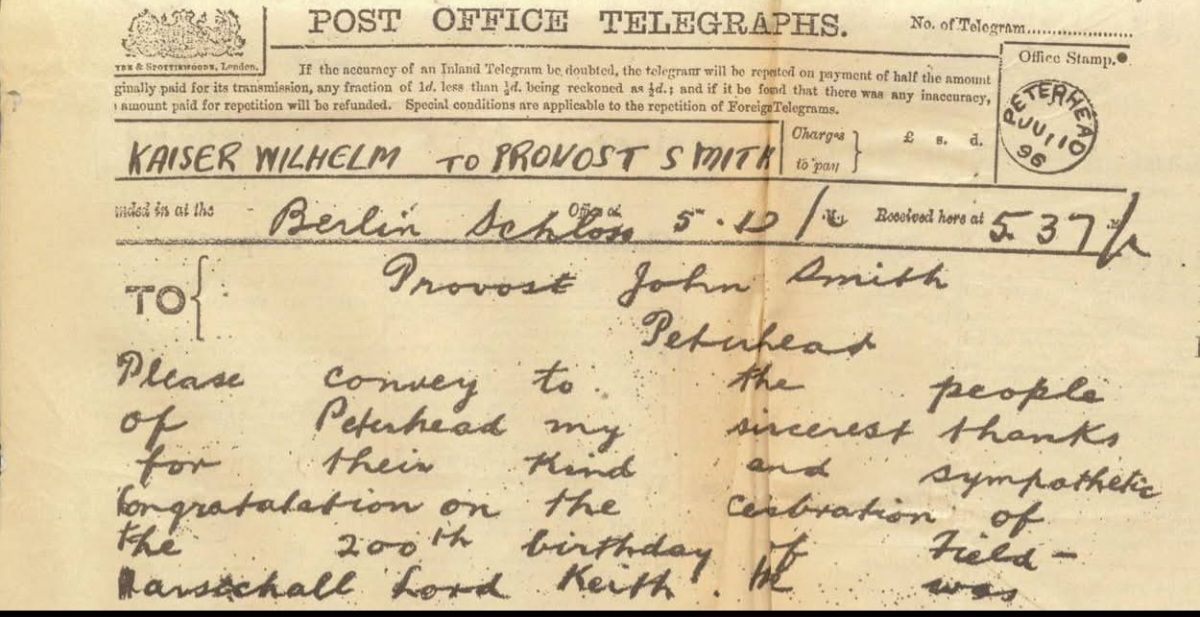 POST OFFICE TELEGRAPHS.
No. of Telegram
Office Stamp.
& Spottiswoode, London.
If the accuracy of an Inland Telegram be doubted, the telegram will be repeated on payment of half the amount
ginally paid for its transmission, any fraction of 1d. less than ½d. being reckoned as ½d.; and if it be found that there was any inaccuracy,
amount paid for repetition will be refunded. Special conditions are applicable to the repetition of Foreign Telegrams.
PETERHEAD
10
96
KAISER WILHELM TO PROVOST SMITH
Charges to pay
£ s. d.
nded in at the Berlin Schloss Office at 5.12
Received here at 5.37
TO
Provost John Smith
Peterhead
Please convey to the people
of Peterhead my sincerest thanks
for their kind and sympathetic
Congratalation on the Ceebration of
the 200th birthday of Field-
Marschall Lord Keith. He was